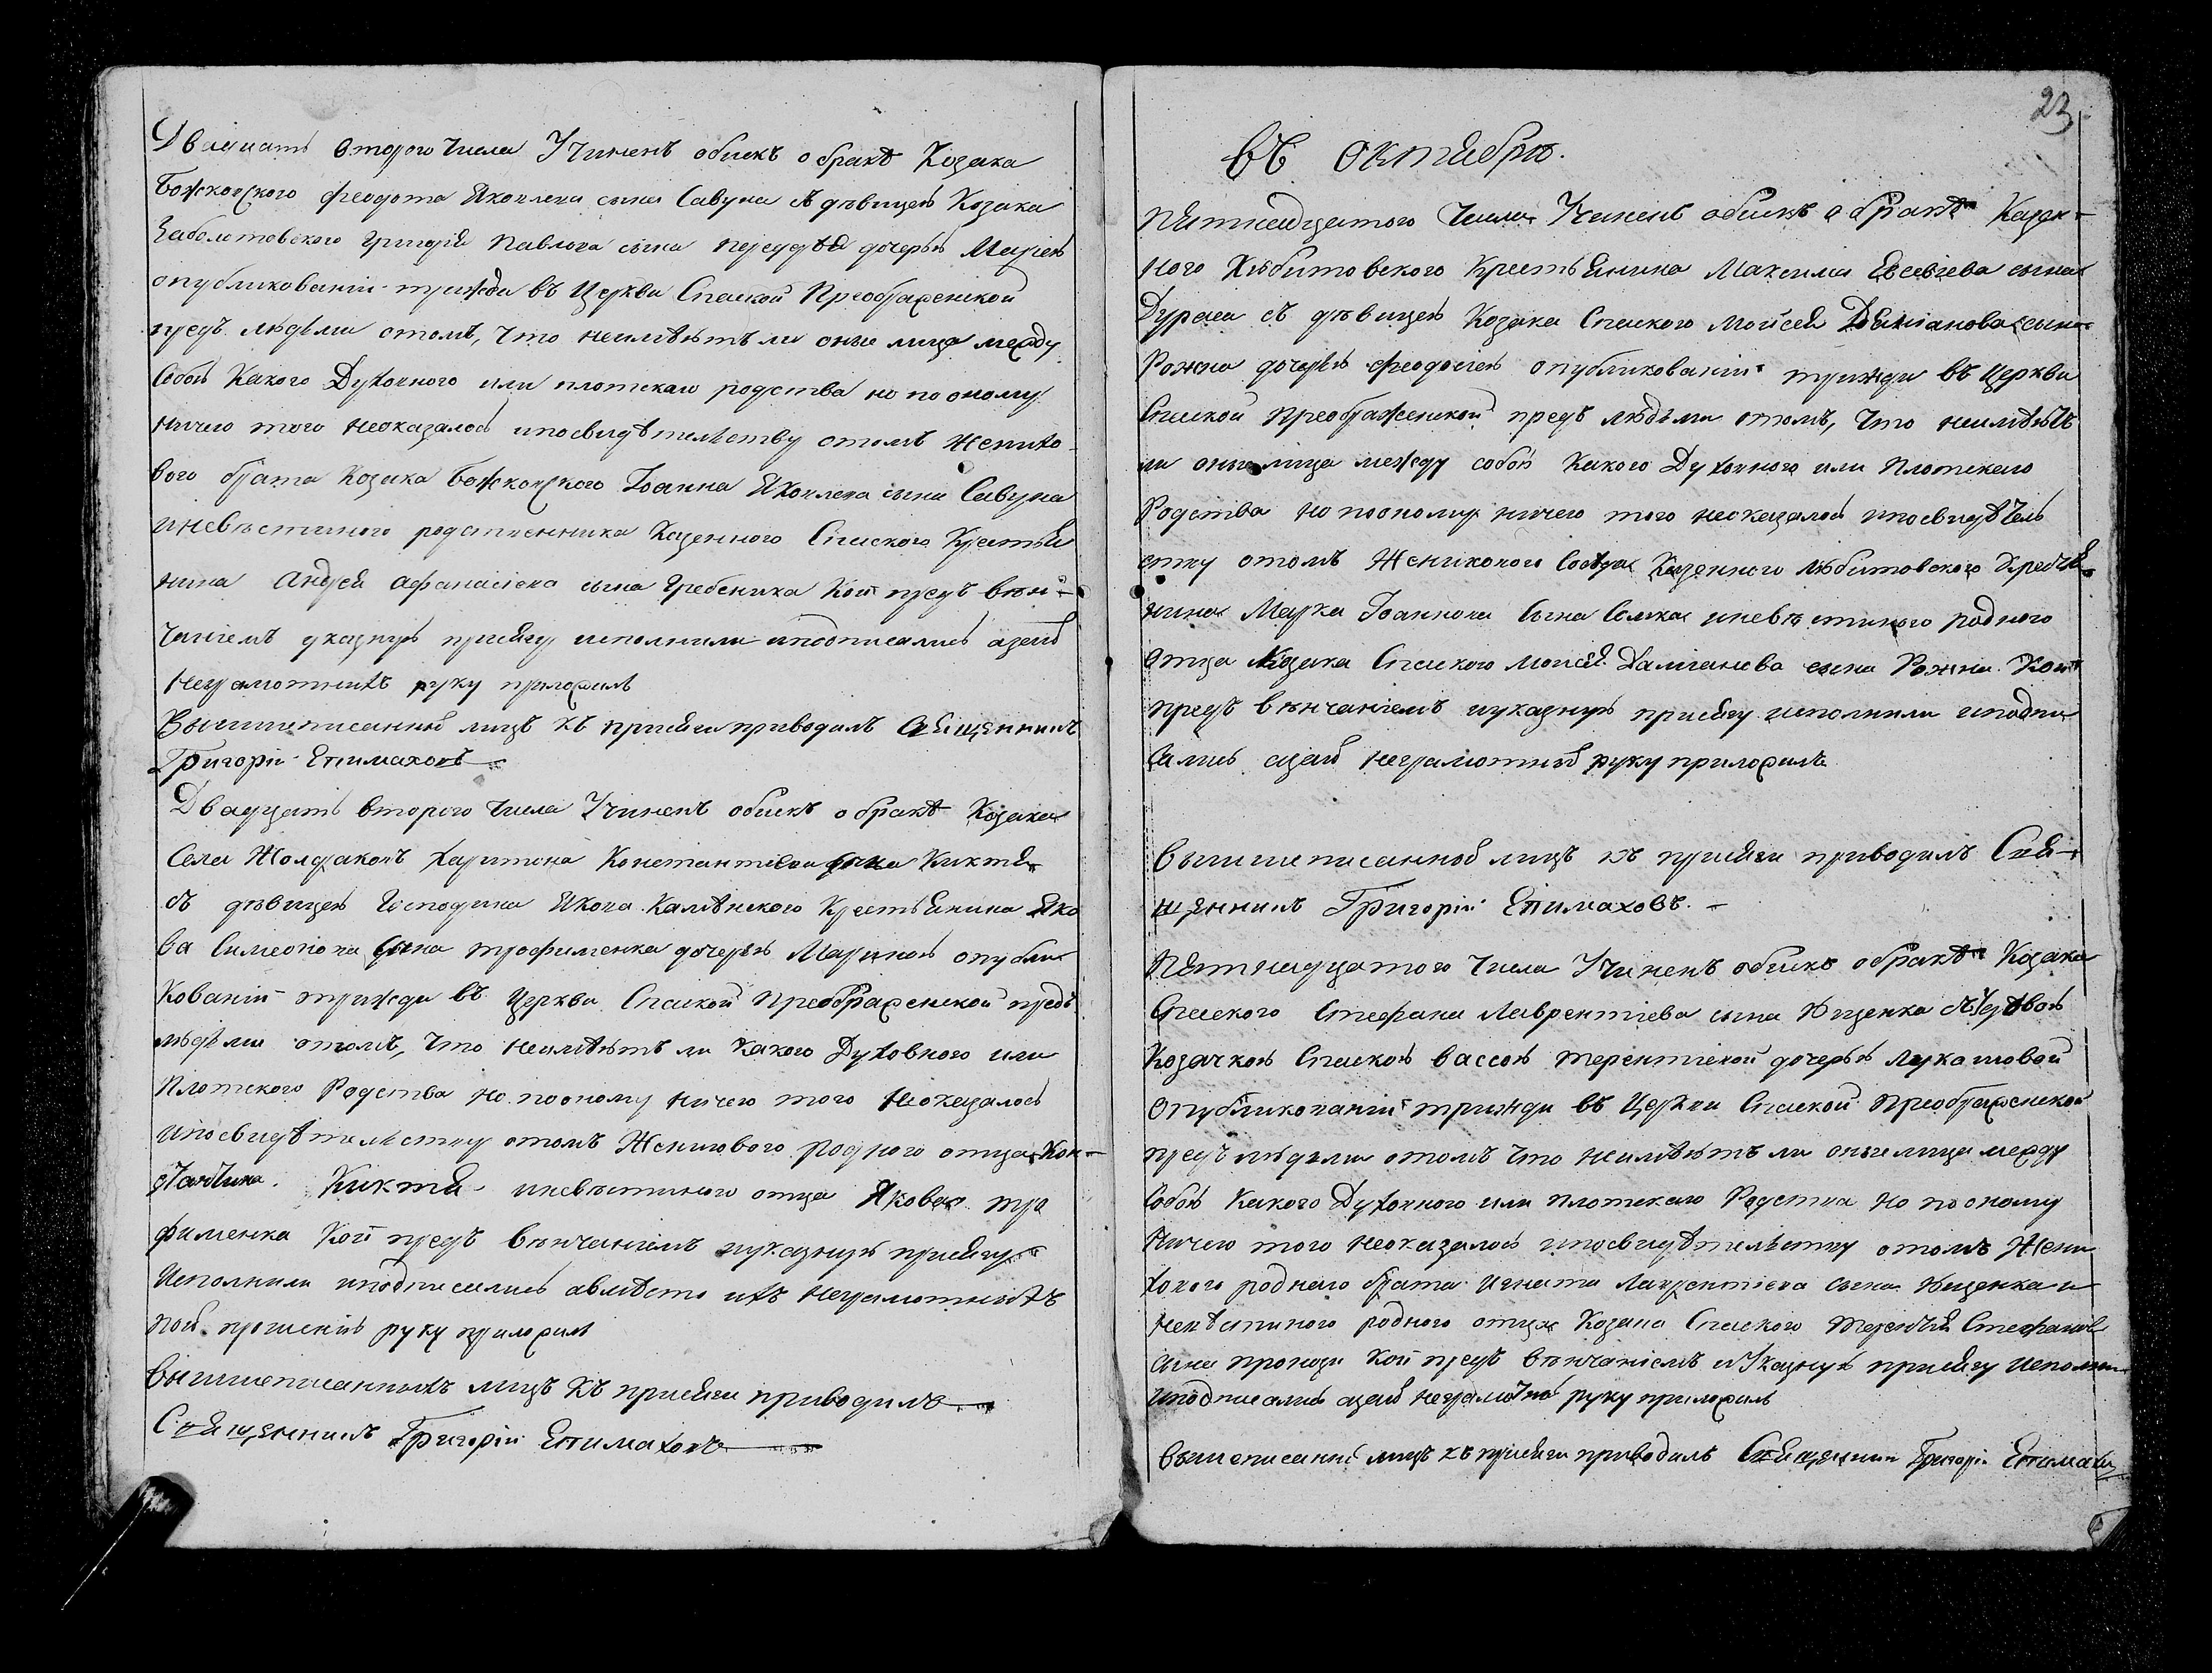 Двадцать второго числа Учиненъ обыскъ о бракѣ Козака
Божковского Феодота Яковлева сына Савуна съ дѣвицею Козака
Заболотовского Григорія Павлова сына дочерью Маріею
опубликованіи трижди въ Церкви Спаской Преображенской
предъ людьми отомъ, что неимѣютъ ли оные лица между
Собою Какого Духовного или плотскаго родства но по оному
ничего того неоказалось ипосвидѣтельству отомъ Женихо-
вого брата Козака Божковского Іоанна Яковлева сына Савуна
иневѣстиного родственника Казенного Спаского Крестья
нина Андрея Афанасіева сына Гребеника Кои предъ вѣн-
чаніемъ указную присягу исполнили иподписались азаихъ
Неграмотныхъ руку приложилъ
Вышшеписанныхъ лицъ къ присяги приводилъ Священникъ
Григорій Епимаховъ
Двадцать второго числа Учиненъ обыскъ о бракѣ Козака
Села Жолдаковъ Харитона Константинова сына Кихтя
съ дѣвицею Господина Якова Камѣнского Крестьянина Яко
ва Симеонова сына Трофименка дочерью Мариною опубли
кованіи трижди въ Церкви Спаской Преображенской предъ
людьми отомъ, что неимѣютъ ли Какого Духовного или
Плотского Родства но поопому ничего того Неоказалось
ипосвидѣтельству отомъ Женихового родного отца Кон-
стантина Кихтя иневѣстиного отца Якова Тро
фименка Кои предъ вѣнчаніемъ иуказную присягу
Исполнили иподписались авмѣсто ихъ неграмотныхъ
по прошенію руку приложилъ
Вышшеписанныхъ лицъ къ присяги приводилъ
Священникъ Григорій Епимаховъ
23
Въ октябрѣ.
Пятнадцатого Числа Учиненъ обыскъ о бракѣ Казен-
ного Любитовского Крестьянина Максима Евсевіева сына
съ дѣвицею Козака Спаского Мойсея Даміанова сына
Рожна дочерью Феодосіею опубликованіи трижди въ Церкви
Спаской Преображенской предъ людьми отомъ, что неимѣютъ
ли оные лица между собою Какого Духовного или Плотскаго
Родства но поопому ничего того неоказалось ипосвидѣтель
ству отомъ Женихового Казенного Любитовского Крестья
нина Марка Іоаннова Сына Сомка иневѣстиного родного
отца Козака Спаского Мойсея Даміанова сына Рожна Кои
предъ вѣнчаніемъ иуказную присягу исполнили иподпи
сались азаихъ неграмотныхъ руку приложилъ
Вышшеписанныхъ лицъ къ присяги приводилъ Свя-
щенникъ Григорій Епимаховъ.
Пятнадцатого Числа Учиненъ обыскъ о бракѣ Козака
Спаского Стефана Лаврентіева сына Ющенка съ вдовою
Козачкою Спаскою Вассою Терентіевой дочерью Лукашовой
Опубликованіи трижди въ Церкви Спаской Преображенской
предъ людьми отомъ что неимѣютъ ли оные лица между
Собою Какого Духовного или плотскаго Родства но по оному
Ничего того Неоказалось ипосвидѣтельству отомъ Жени
хового родного брата Игната Лаврентіева сына Ющенка и
невѣстиного родного отца Козака Спаского Терентія Стефанов
сына Кои предъ вѣнчаніемъ иУказную присягу исполни
иподписались азаихъ неграмотныхъ руку приложилъ
Вышеписанныхъ лицъ къ присяги приводилъ Священникъ Григорій Епимаховъ